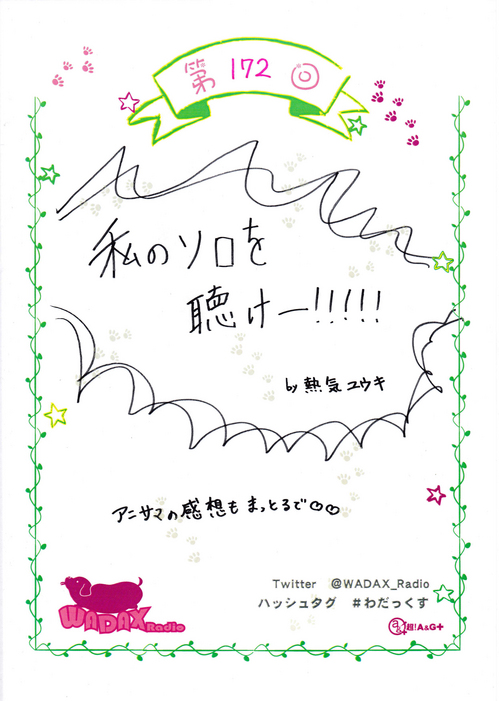 第 172 回
私のソロを
聴けー!!!!!
by 熱気ユウキ
アニサマの感想もまっとるで♡♡
Twitter @WADAX_Radio
ハッシュタグ #わだっくす
WADAX Radio
超!A&G+